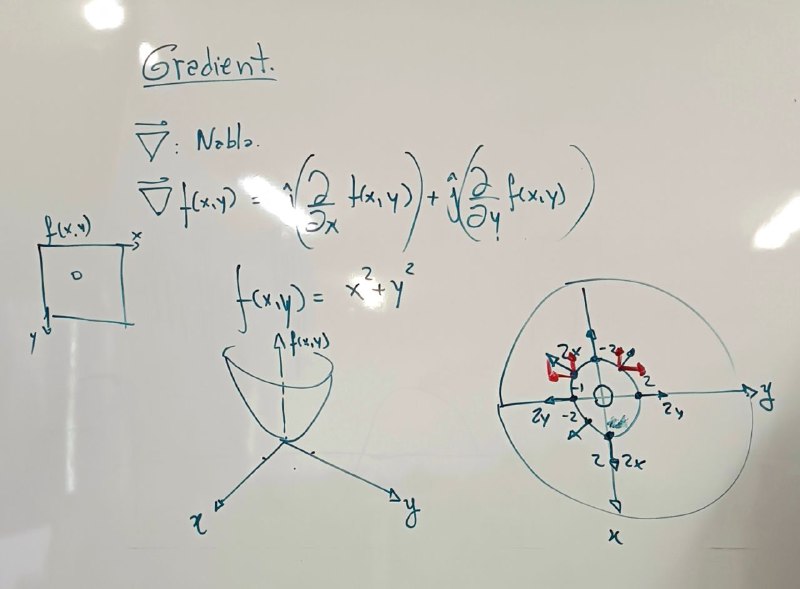 Gradient.
∇⃗: Nabla.
∇⃗ f(x,y) = î(∂/∂x f(x,y)) + ĵ(∂/∂y f(x,y))
f(x,y)
x
y
f(x,y) = x² + y²
f(x,y)
x
y
2x
-2
-1
2
y
2y
-2
2y
2
2x
x